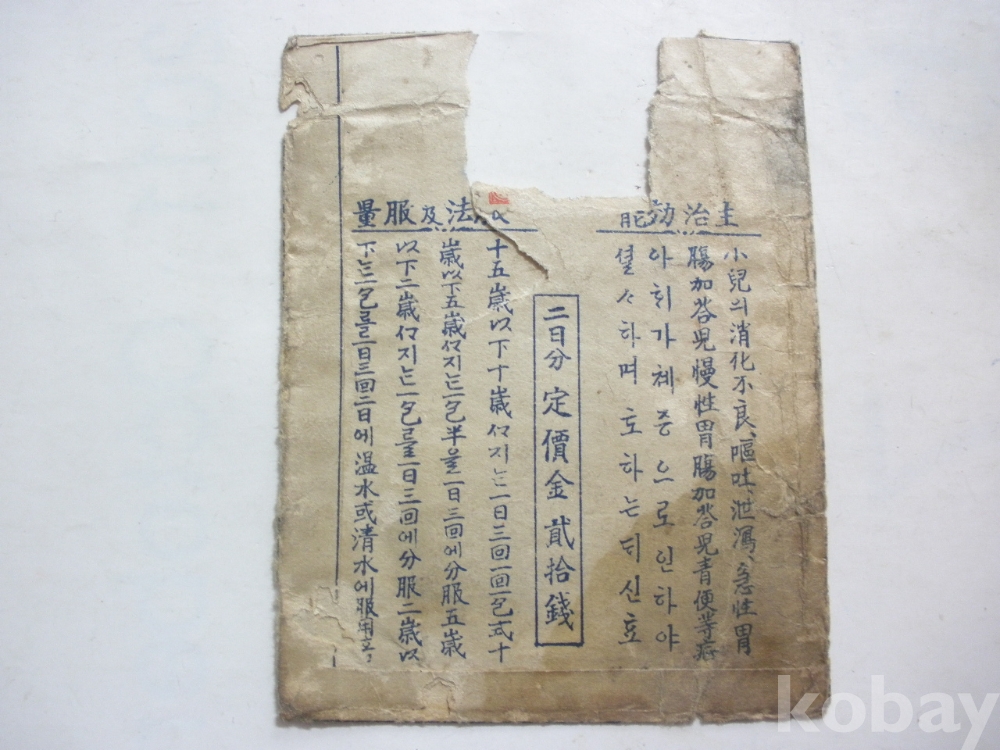 主治効能
小兒의消化不良、嘔吐、泄瀉、急性胃
膓加荅兒慢性胃膓加荅兒青便等症
아희가체증으로인하야
셜々하며토하는되신효
二日分定價金貳拾錢
法及服量
十五歲以下十歲까지는一日三回一回一包式十
歲以下五歲까지는一包半을一日三回에分服五歲
以下二歲까지는一包를一日三回에分服二歲以
下는一包를一日三回二日에温水或清水에服用
kobay